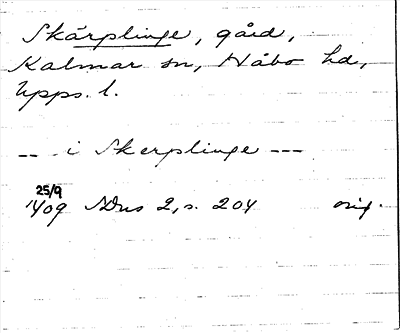 Skärplinge, gård,
Kalmar sn, Håbo hd,
Upps. l.
--- i Skerplinge ---
25/9
1409 SDns 2, s. 204 orig.